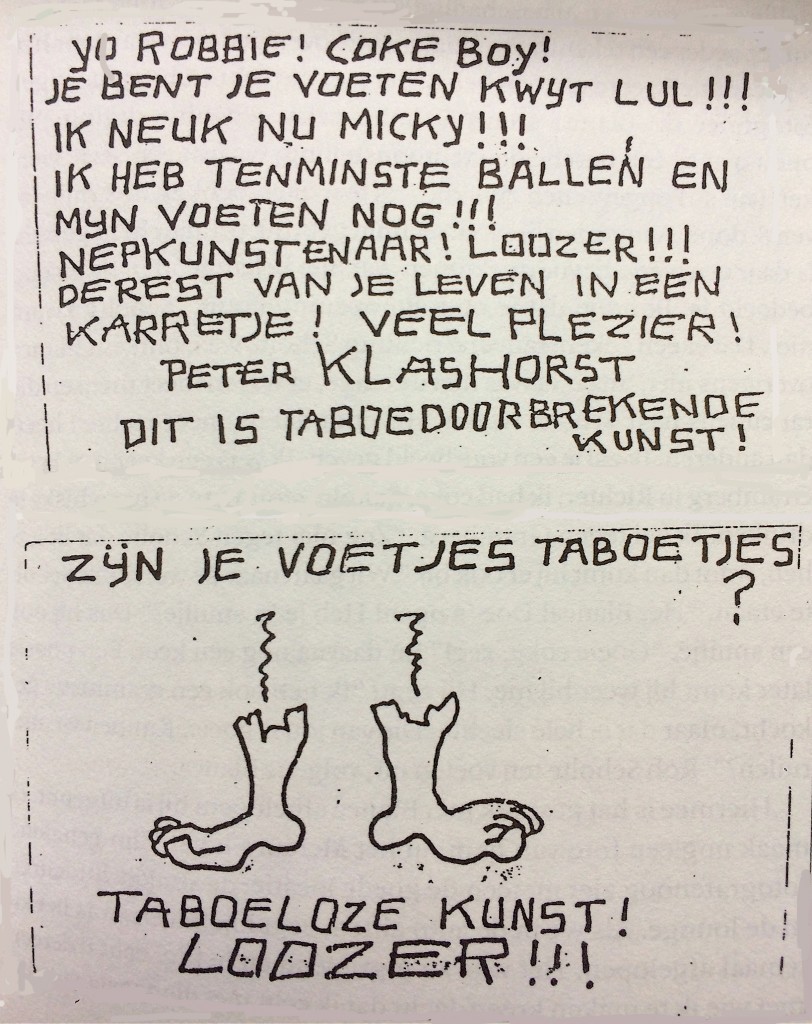 YO ROBBIE! COKE BOY!
JE BENT JE VOETEN KWYT LUL!!!
IK NEUK NU MICKY!!!
IK HEB TENMINSTE BALLEN EN
MYN VOETEN NOG!!!
NEPKUNSTENAAR! LOOZER!!!
DE REST VAN JE LEVEN IN EEN
KARRETJE! VEEL PLEZIER!
PETER KLASHORST
DIT IS TABOEDOORBREKENDE
KUNST!
ZÿN JE VOETJES TABOETJES
?
TABOELOZE KUNST!
LOOZER!!!